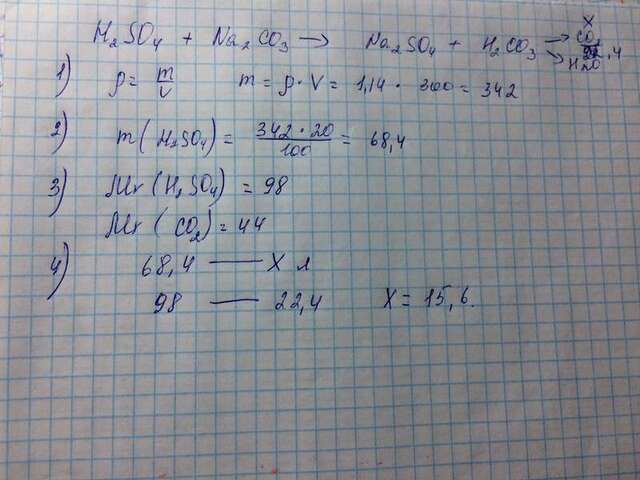 H₂SO₄ + Na₂CO₃ → Na₂SO₄ + H₂CO₃ → CO₂ X
→ H₂O 22,4
1) ρ = m/V m = ρ · V = 1,14 · 300 = 342
2) m(H₂SO₄) = 342 · 20 / 100 = 68,4
3) Mr(H₂SO₄) = 98
Mr(CO₂) = 44
4) 68,4 — X л
98 — 22,4 X = 15,6.